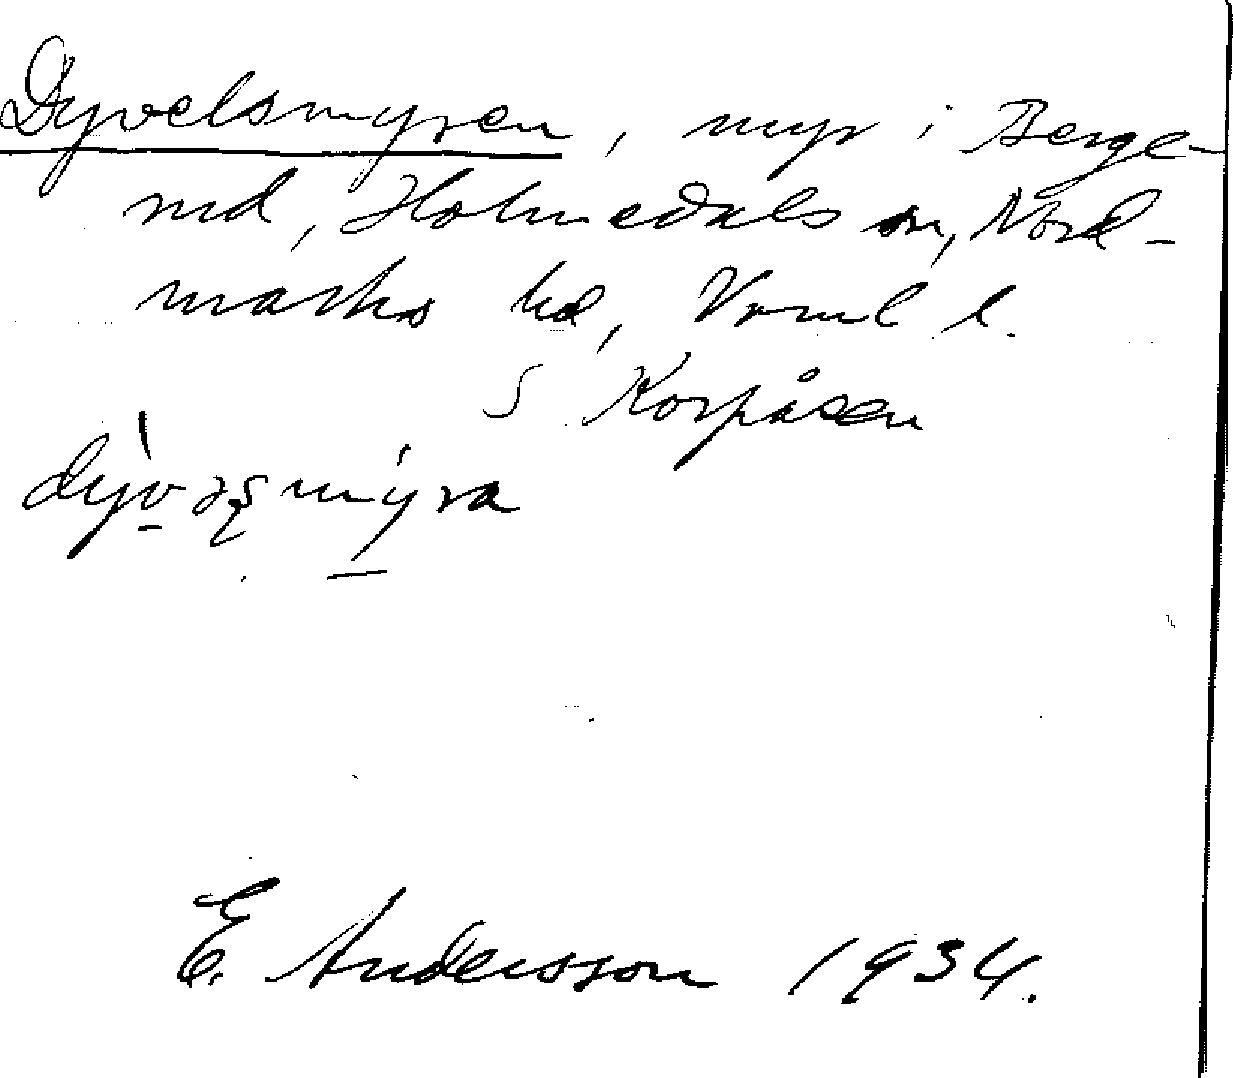 Dyvelsmyren, myr i Berge-
rud, Holmedals sn, Nord-
marks hd, Vrml l.
S Korpåsen
E. Andersson 1934.